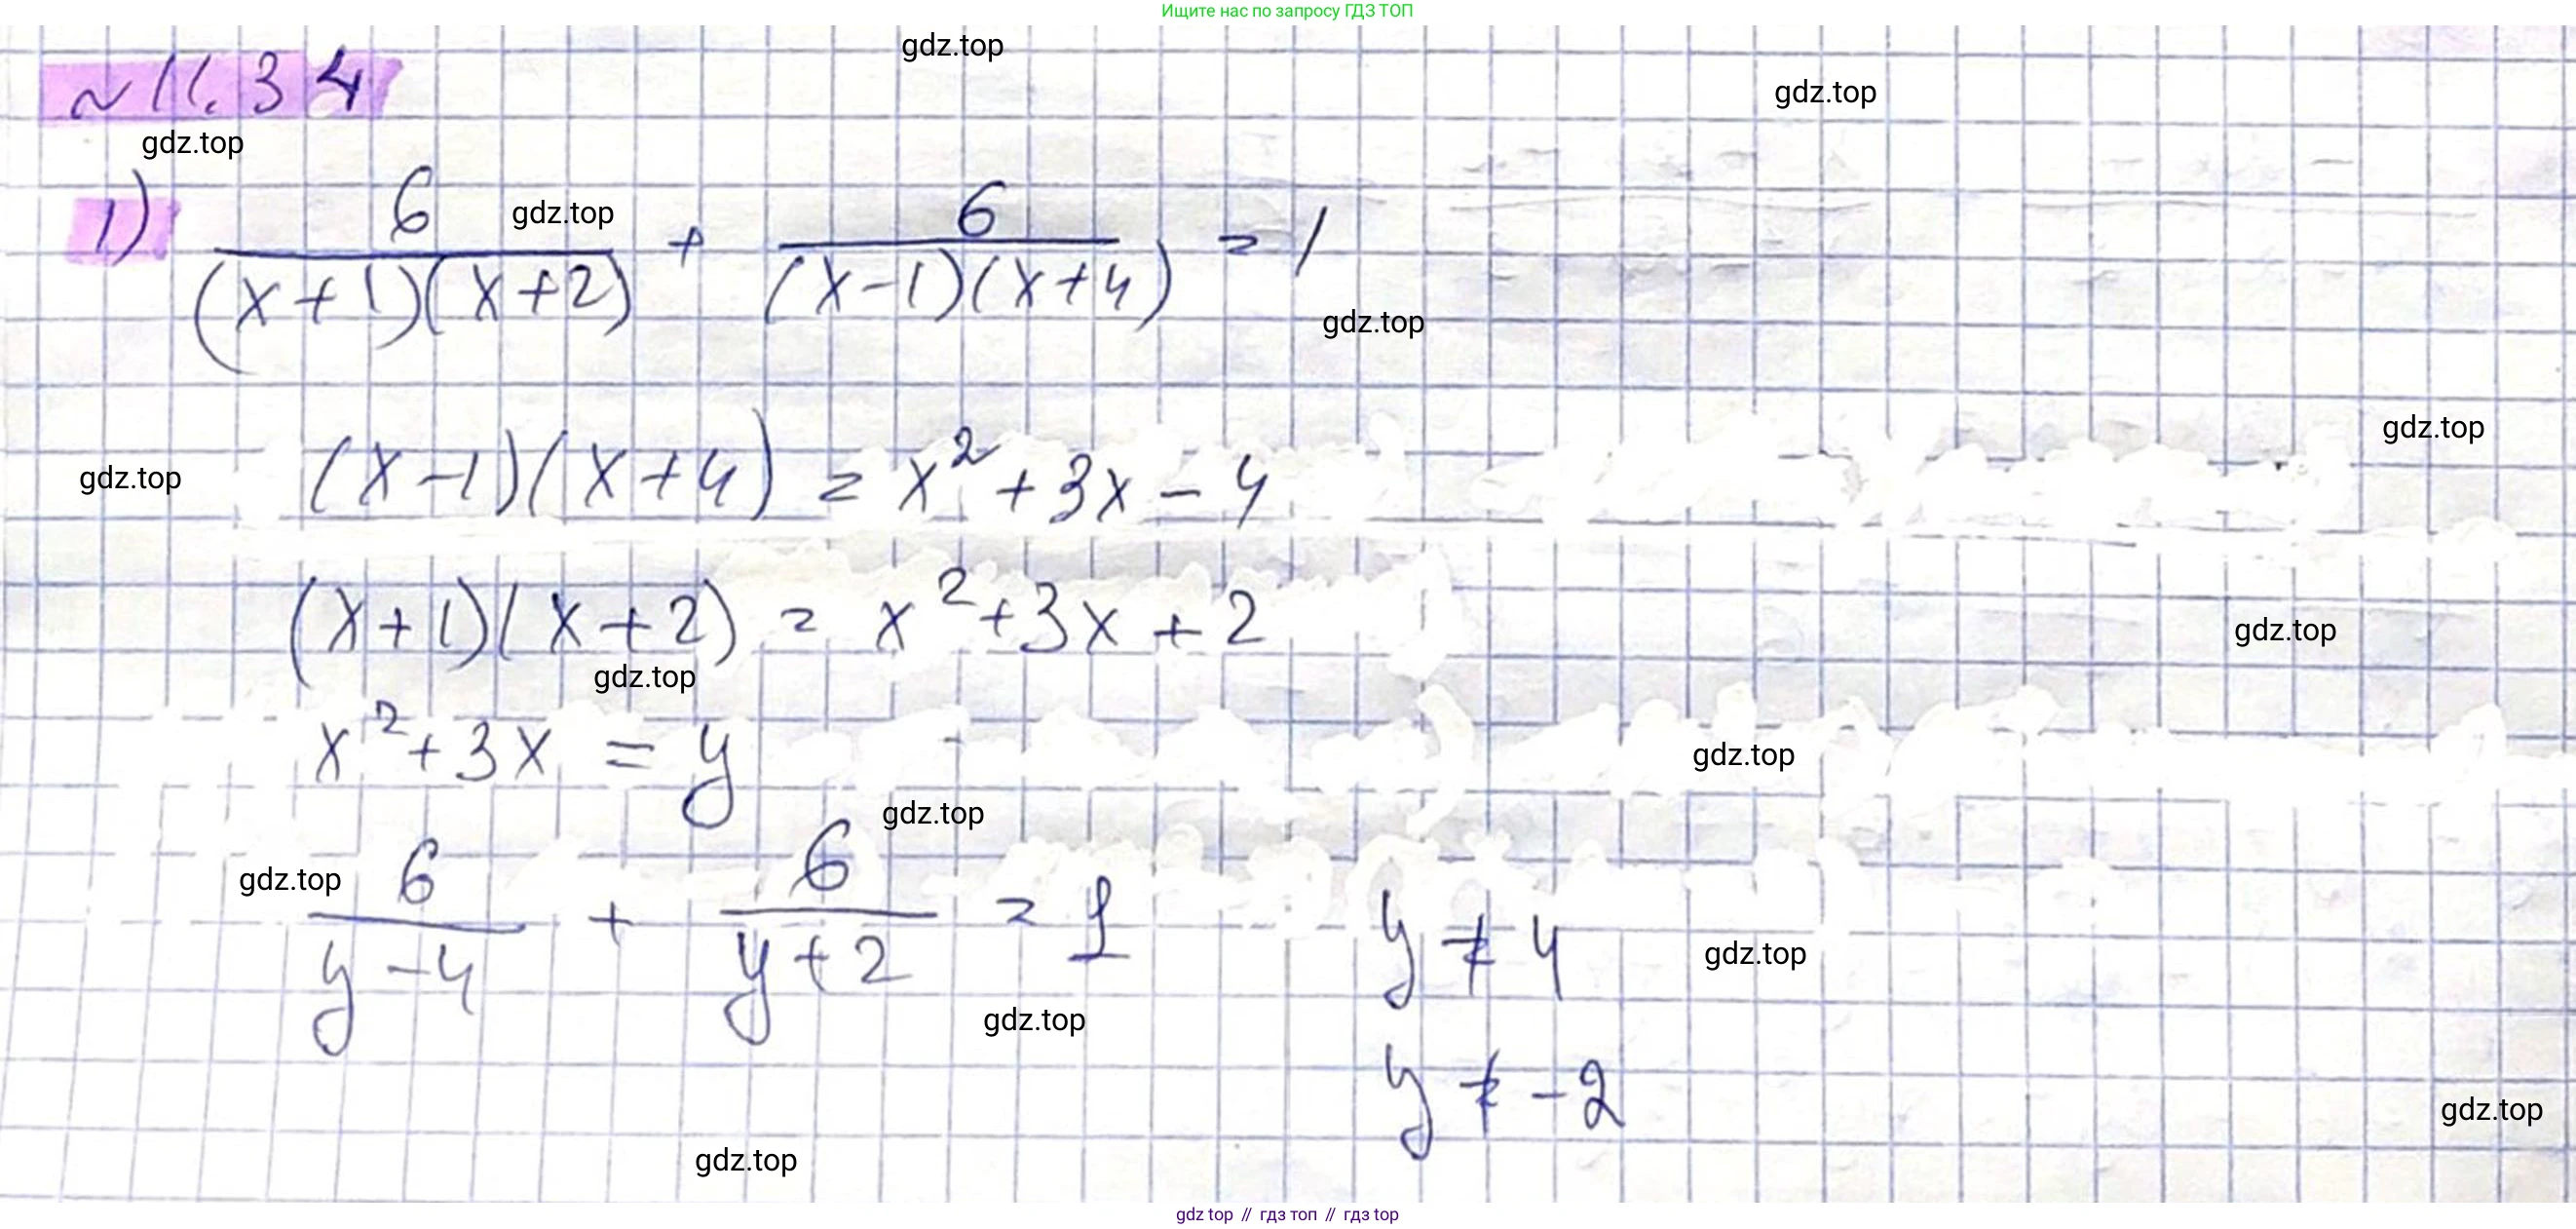 Ищите нас по запросу ГДЗ ТОП
gdz.top
~11.34
gdz.top
gdz.top
1) 6/((x+1)(x+2)) + 6/((x-1)(x+4)) = 1
gdz.top
gdz.top
gdz.top
gdz.top
(x-1)(x+4) = x²+3x-4
(x+1)(x+2) = x²+3x+2
gdz.top
gdz.top
x²+3x = y
gdz.top
gdz.top
gdz.top
6/(y-4) + 6/(y+2) = 1 y ≠ 4
gdz.top
gdz.top
y ≠ -2
gdz.top
gdz.top
gdz top // гдз топ // гдз top